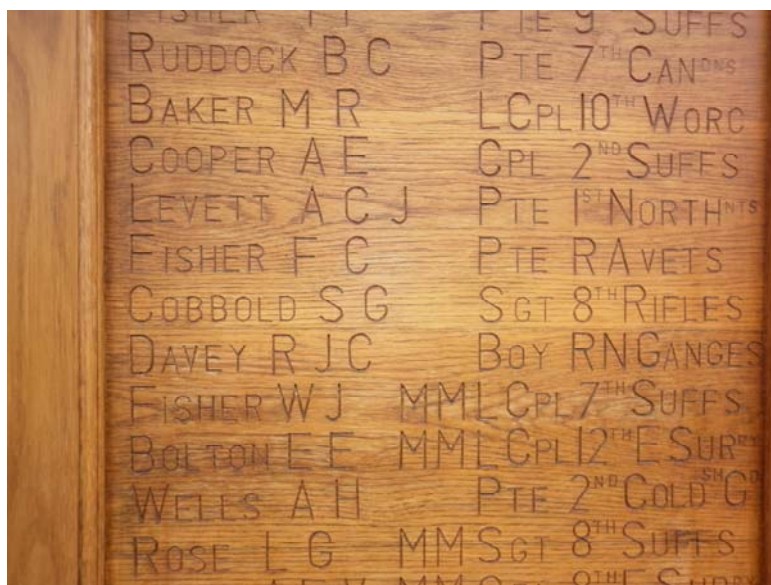 FISHER 9TH SUFFS
RUDDOCK B C PTE 7TH CANDNS
BAKER M R L CPL 10TH WORC
COOPER A E CPL 2ND SUFFS
LEVETT A C J PTE 1ST NORTHNTS
FISHER F C PTE RAVETS
COBBOLD S G SGT 8TH RIFLES
DAVEY R J C BOY RN GANGES
FISHER W J MM L CPL 7TH SUFFS
BOLTON E E MM L CPL 12TH E SURRY
WELLS A H PTE 2ND COLDSHGD
ROSE L G MM SGT 8TH SUFFS